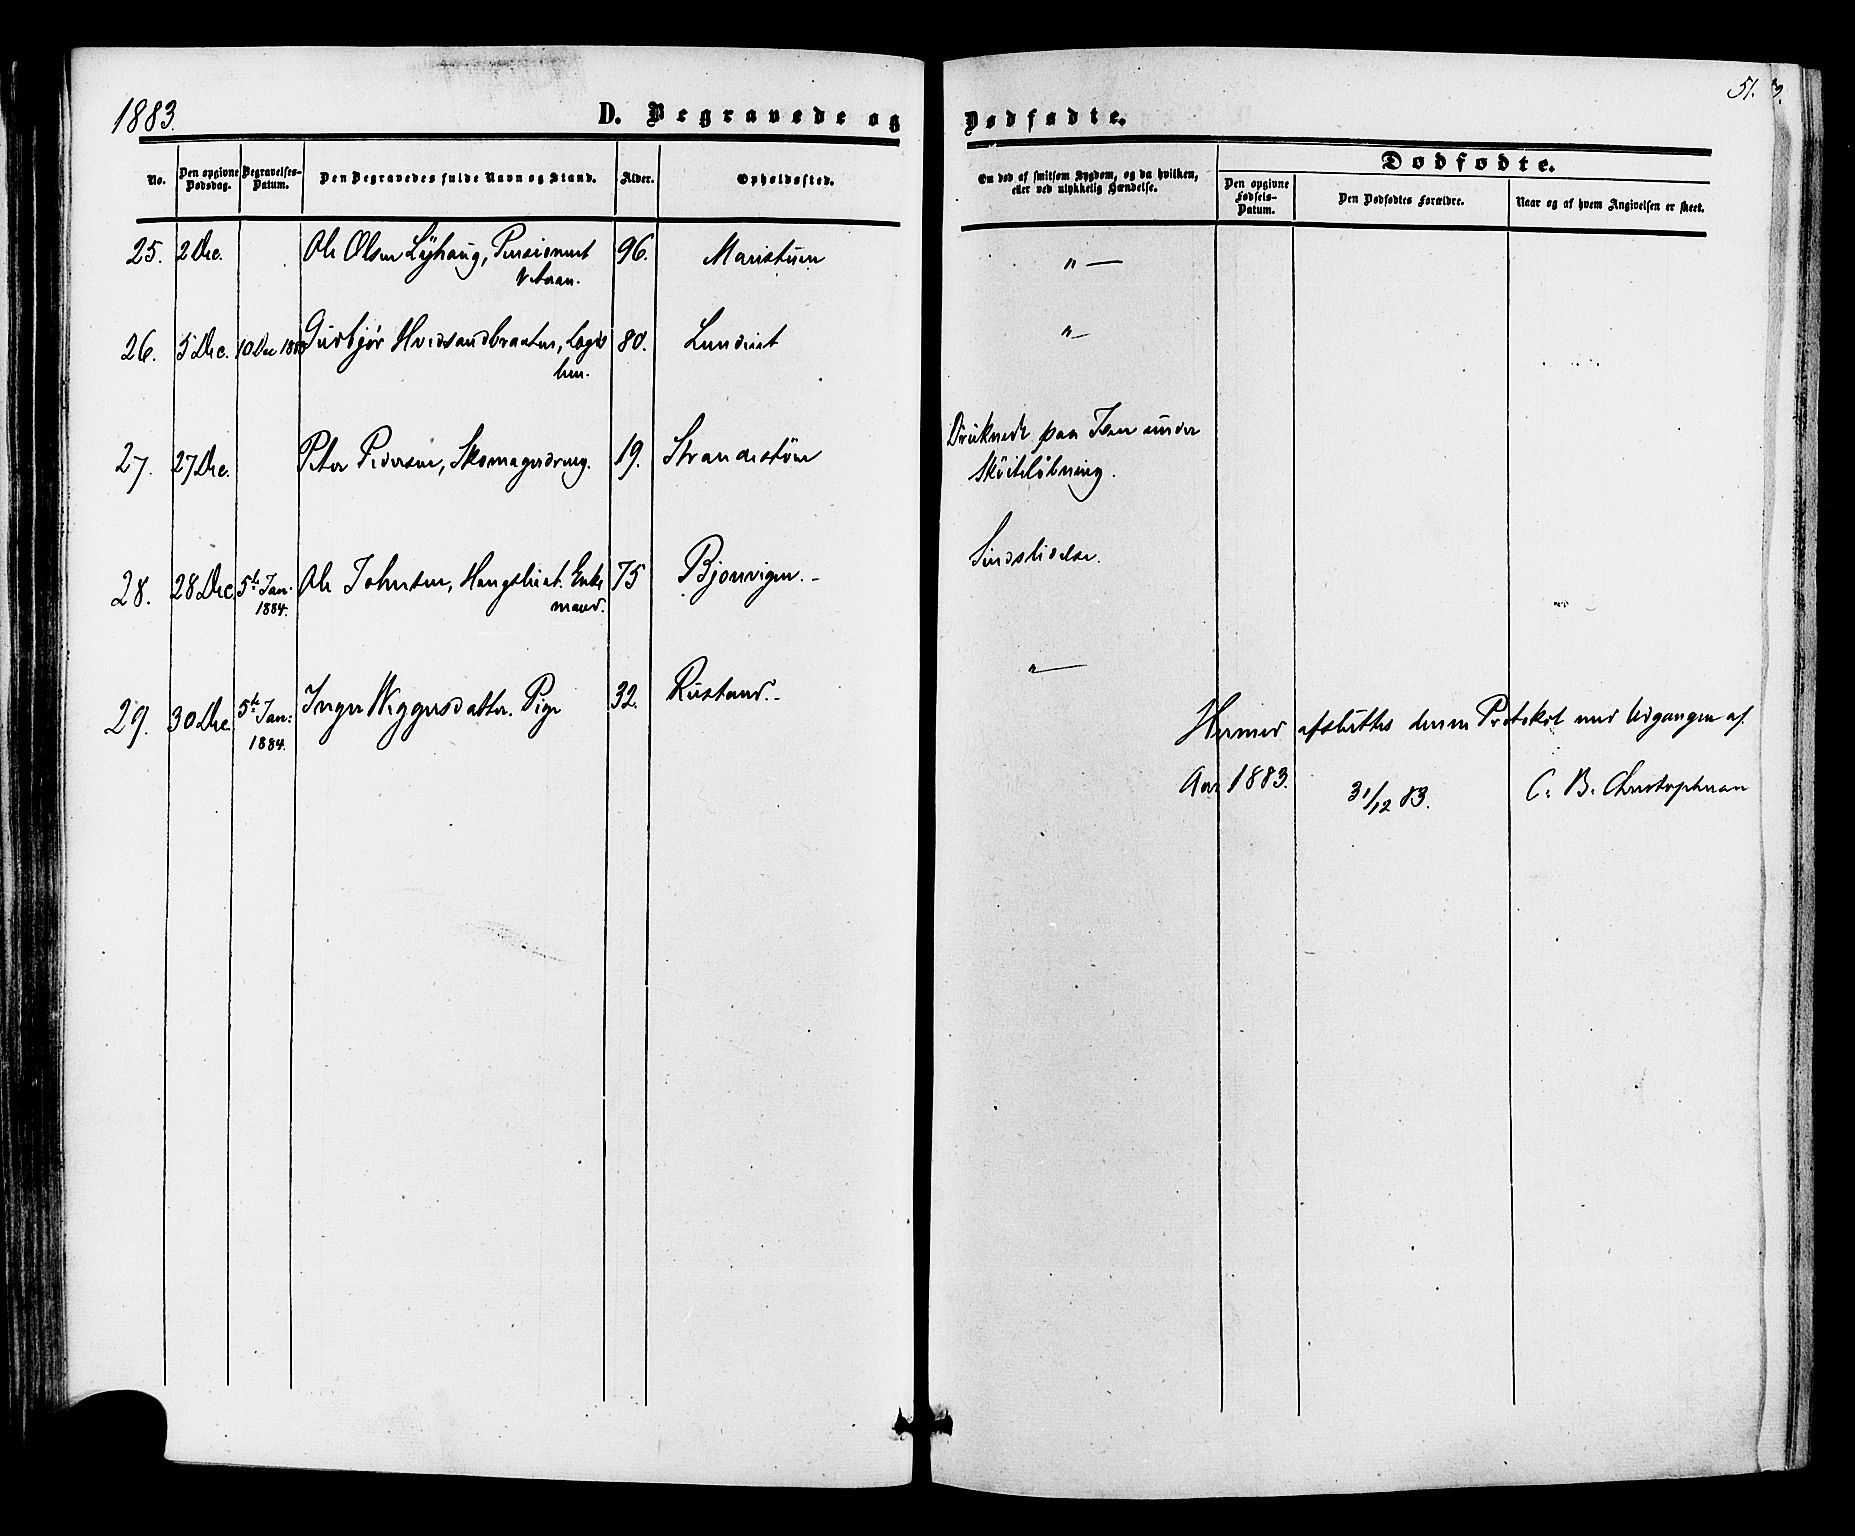 1883.
D. Begravede og Dødfødte.
51.
No.
Den opgivne Dødsdag.
Begravelses-Datum.
Den Begravedes fulde Navn og Stand.
Alder.
Opholdssted.
Om død af smitsom Sygdom, og da hvilken,
eller ved ulykkelig Hændelse.
Dødfødte.
Den opgivne Fødsels-Datum.
Den Dødfødtes Forældre.
Naar og af hvem Angivelsen er skeet.
25. 2 Dec. Ole Olsen Lyhaug, Pensioneret 96. Maristuen " —
Veteran.
26. 5 Dec. 10 Dec 1883 Gurbjør Hvidsandbraaten, Lægds 80. Lundeiet " —
lem.
27. 27 Dec. Peter Pedersen, Skomagerdreng. 19. Strandestøen Druknede paa Isen under
Skøiteløbning.
28. 28 Dec 5te Jan. Ole Johnsen, Haugsleiet. Enke 75 Bjonvigen. - Sindslidelse.
1884. mand.
29. 30 Dec 5te Jan: Inger Wiggersdatter. Pige 32. Rustand. - " —
1884.
Hermed afsluttes denne Protokol med Udgangen af
Aar 1883. 31/12 83. C. B. Christophersen